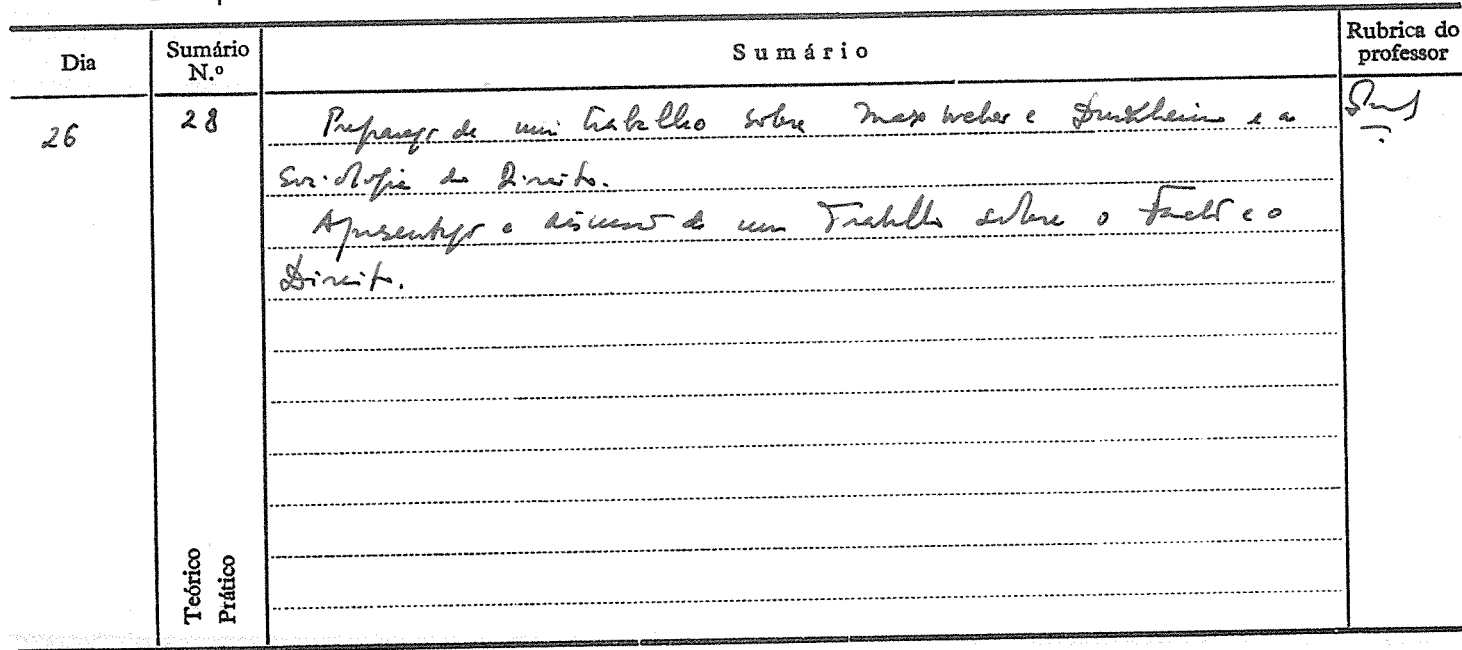 Dia
Sumário N.º
Sumário
Rubrica do professor
26
28
Preparação de um trabalho sobre Max Weber e Durkheim e a
Sociologia do Direito.
Apresentação e discussão de um Trabalho sobre o Facto e o
Direito.
Teórico
Prático